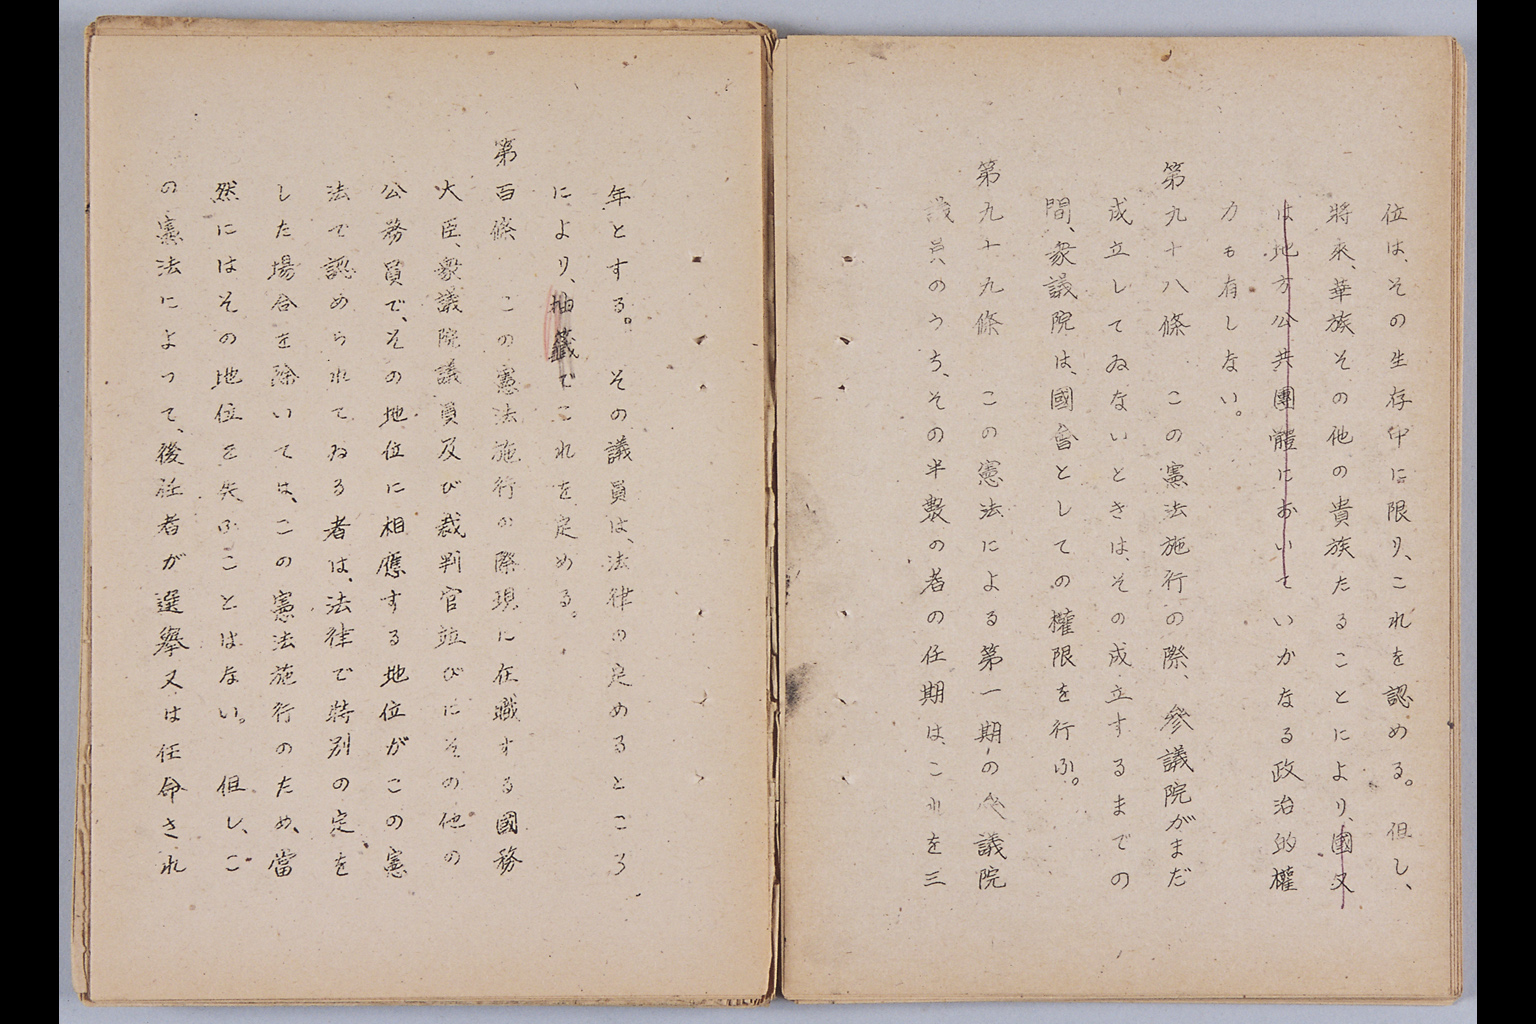 位は、その生存中に限り、これを認める。但し、
將來、華族その他の貴族たることにより、國又
は地方公共團體においていかなる政治的權
力も有しない。
第九十八條　この憲法施行の際、參議院がまだ
成立してゐないときは、その成立するまでの
間、衆議院は、國會としての權限を行ふ。
第九十九條　この憲法による第一期の參議院
議員のうち、その半數の者の任期は、これを三
年とする。その議員は、法律の定めるところ
により、抽籤でこれを定める。
第百條　この憲法施行の際現に在職する國務
大臣、衆議院議員及び裁判官竝びにその他の
公務員で、その地位に相應する地位がこの憲
法で認められてゐる者は、法律で特別の定を
した場合を除いては、この憲法施行のため、當
然にはその地位を失ふことはない。但し、こ
の憲法によつて、後任者が選擧又は任命され